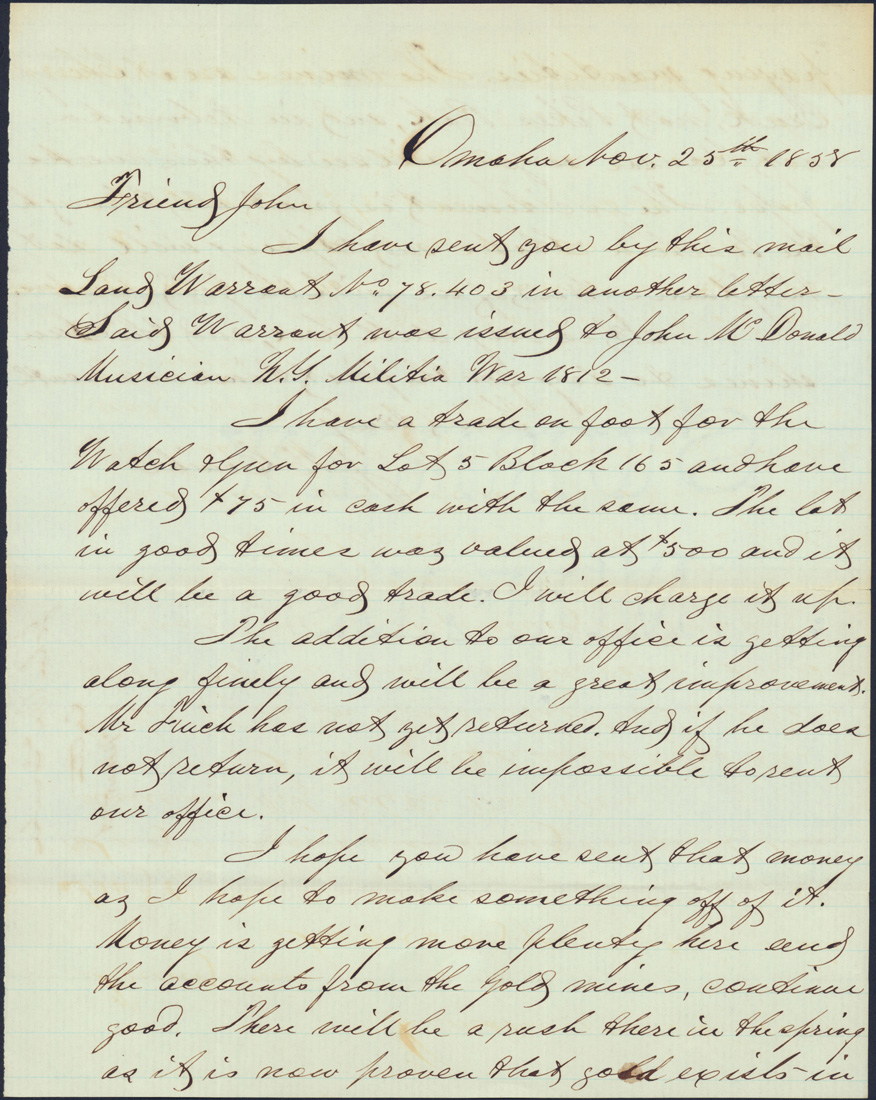 Omaha Nov. 25th 1858
Friend John
I have sent you by this mail
Land Warrant No. 78.403 in another letter -
Said Warrant was issued to John McDonald
Musician N.Y. Militia War 1812 -
I have a trade on foot for the
Watch & Gun for Lot 5 Block 165 and have
offered $75 in cash with the same. The lot
in good times was valued at $500 and it
will be a good trade. I will charge it up.
The addition to our office is getting
along finely and will be a great improvement.
Mr Finch has not yet returned. And if he does
not return, it will be impossible to rent
our office.
I hope you have sent that money
as I hope to make something off of it.
Money is getting more plenty here and
the accounts from the Gold mines, continue
good. There will be a rush there in the spring
as it is now proven that gold exists in